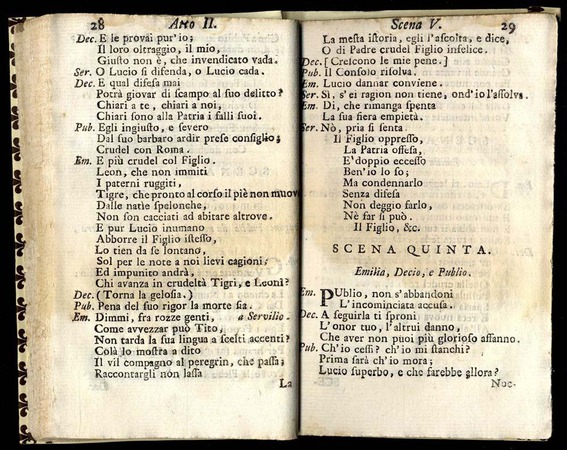 28 Atto II.
Dec. E le provai pur'io;
Il loro oltraggio, il mio,
Giusto non è, che invendicato vada.
Ser. O Lucio si difenda, o Lucio cada.
Dec. E qual difesa mai
Potrà giovar di scampo al suo delitto?
Chiari a te, chiari a noi,
Chiari sono alla Patria i falli suoi.
Pub. Egli ingiusto, e severo
Dal suo barbaro ardir prese consiglio;
Crudel con Roma.
Em. E più crudel col Figlio.
Leon, che non immiti
I paterni ruggiti,
Tigre, che pronto al corso il piè non muove
Dalle natie spelonche,
Non son cacciati ad abitare altrove.
E pur Lucio inumano
Abborre il Figlio istesso,
Lo tien da se lontano,
Sol per le note a noi lievi cagioni;
Ed impunito andrà,
Chi avanza in crudeltà Tigri, e Leoni?
Dec. (Torna la gelosia.)
Pub. Pena del suo rigor la morte sia.
Em. Dimmi, fra rozze genti, a Servilio.
Come avvezzar può Tito,
Non tarda la sua lingua a scelti accenti?
Colà lo mostra a dito
Il vil compagno al peregrin, che passa;
Raccontargli non lassa
La
Scena V. 29
La mesta istoria, egli l'ascolta, e dice,
O di Padre crudel Figlio infelice.
Dec. [Crescono le mie pene.]
Pub. Il Consolo risolva.
Em. Lucio dannar conviene.
Ser. Sì, s'ei ragion non tiene, ond'io l'assolva.
Em. Di, che rimanga spenta
La sua fiera empietà.
Ser. Nò, pria si senta.
Il Figlio oppresso,
La Patria offesa,
E' doppio eccesso
Ben'io lo so;
Ma condennarlo
Senza difesa
Non deggio farlo,
Nè far si può.
Il Figlio, &c.
SCENA QUINTA.
Emilia, Decio, e Publio.
Em. PUblio, non s'abbandoni
L'incominciata accusa.
Dec. A seguirla ti sproni
L'onor tuo, l'altrui danno,
Che aver non puoi più glorioso affanno.
Pub. Ch'io cessi? ch'io mi stanchi?
Prima sarà ch'io mora;
Lucio superbo, e che farebbe allora?
Noc-